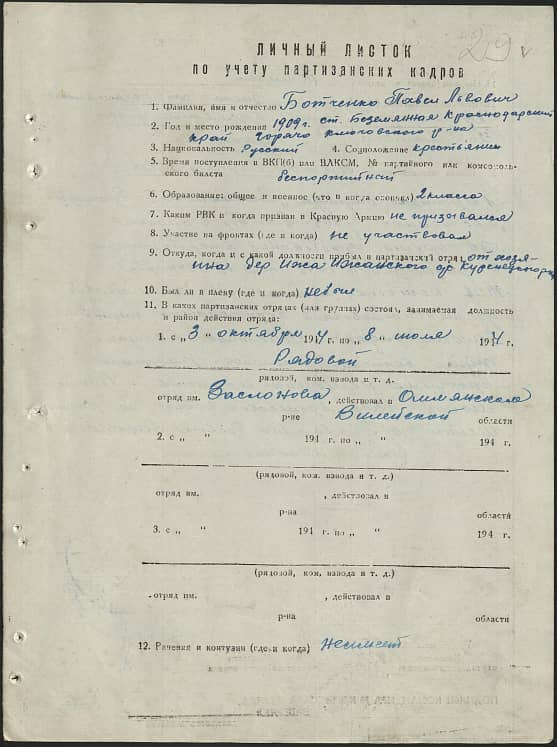 29 v
ЛИЧНЫЙ ЛИСТОК
по учету партизанских кадров
1. Фамилия, имя и отчество Ботченко Павел Львович
2. Год и место рождения 1909 г. ст. Беземянная Краснодарский
край горячо ключовского р-на
3. Национальность Русский 4. Соцположение крестьянин
5. Время поступления в ВКП(б) или ВЛКСМ, № партийного или комсомоль-
ского билета беспортийный
6. Образование: общее и военное (что и когда окончил) 2 класса
7. Каким РВК и когда призван в Красную Армию не призывался
8. Участие на фронтах (где и когда) не участвовал
9. Откуда, когда и с какой должности прибыл в партизанский отряд от хозя-
ина дер Ижа Ижанского
10. Был ли в плену (где и когда) не был
11. В каких партизанских отрядах (или группах) состоял, занимаемая должность
и район действия отряда:
1. с „3 " октября 194 г. по „ 8 " июля 194 4 г.
Рядовой
рядовой, ком. взвода и т. д.
отряд им. Заслонова, действовал в
р-не Вилейской области
2. с „ " 194 г. по „ " 194 г.
(рядовой, ком. взвода и т. д.)
отряд им. , действовал в
р-на области
3. с „ " 194 г. по „ " 194 г.
(рядовой, ком. взвода и т. д.)
отряд им. , действовал в
р-на области
12. Ранения и контузии (где и когда) не имеет